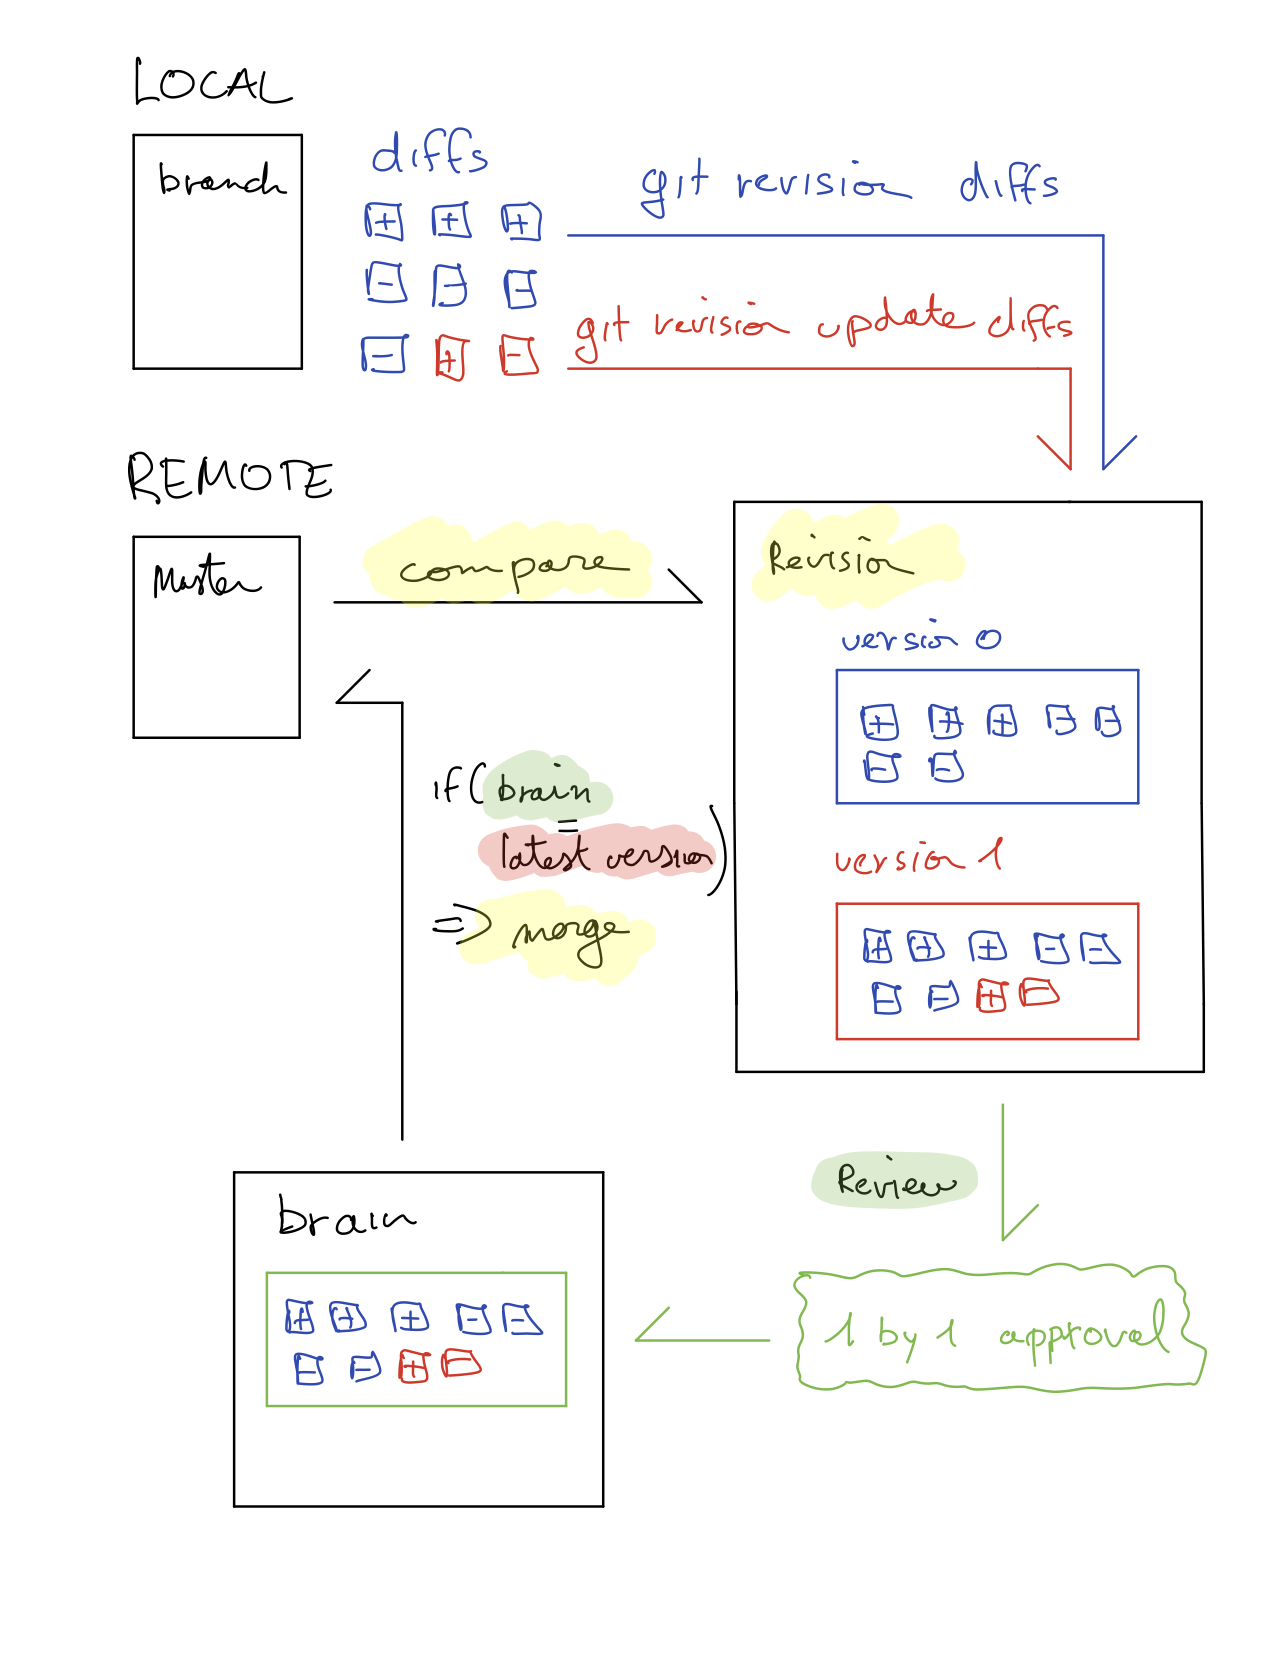 LOCAL
branch
diffs
git revision diffs
+ + +
- - -
- + -
git revision update diffs
REMOTE
Master
compare
Revision
version 0
+ + + - -
- -
if (brain
=
latest version)
=> merge
version 1
+ + + - -
- - + -
Review
brain
+ + + - -
- - + -
1 by 1 approval